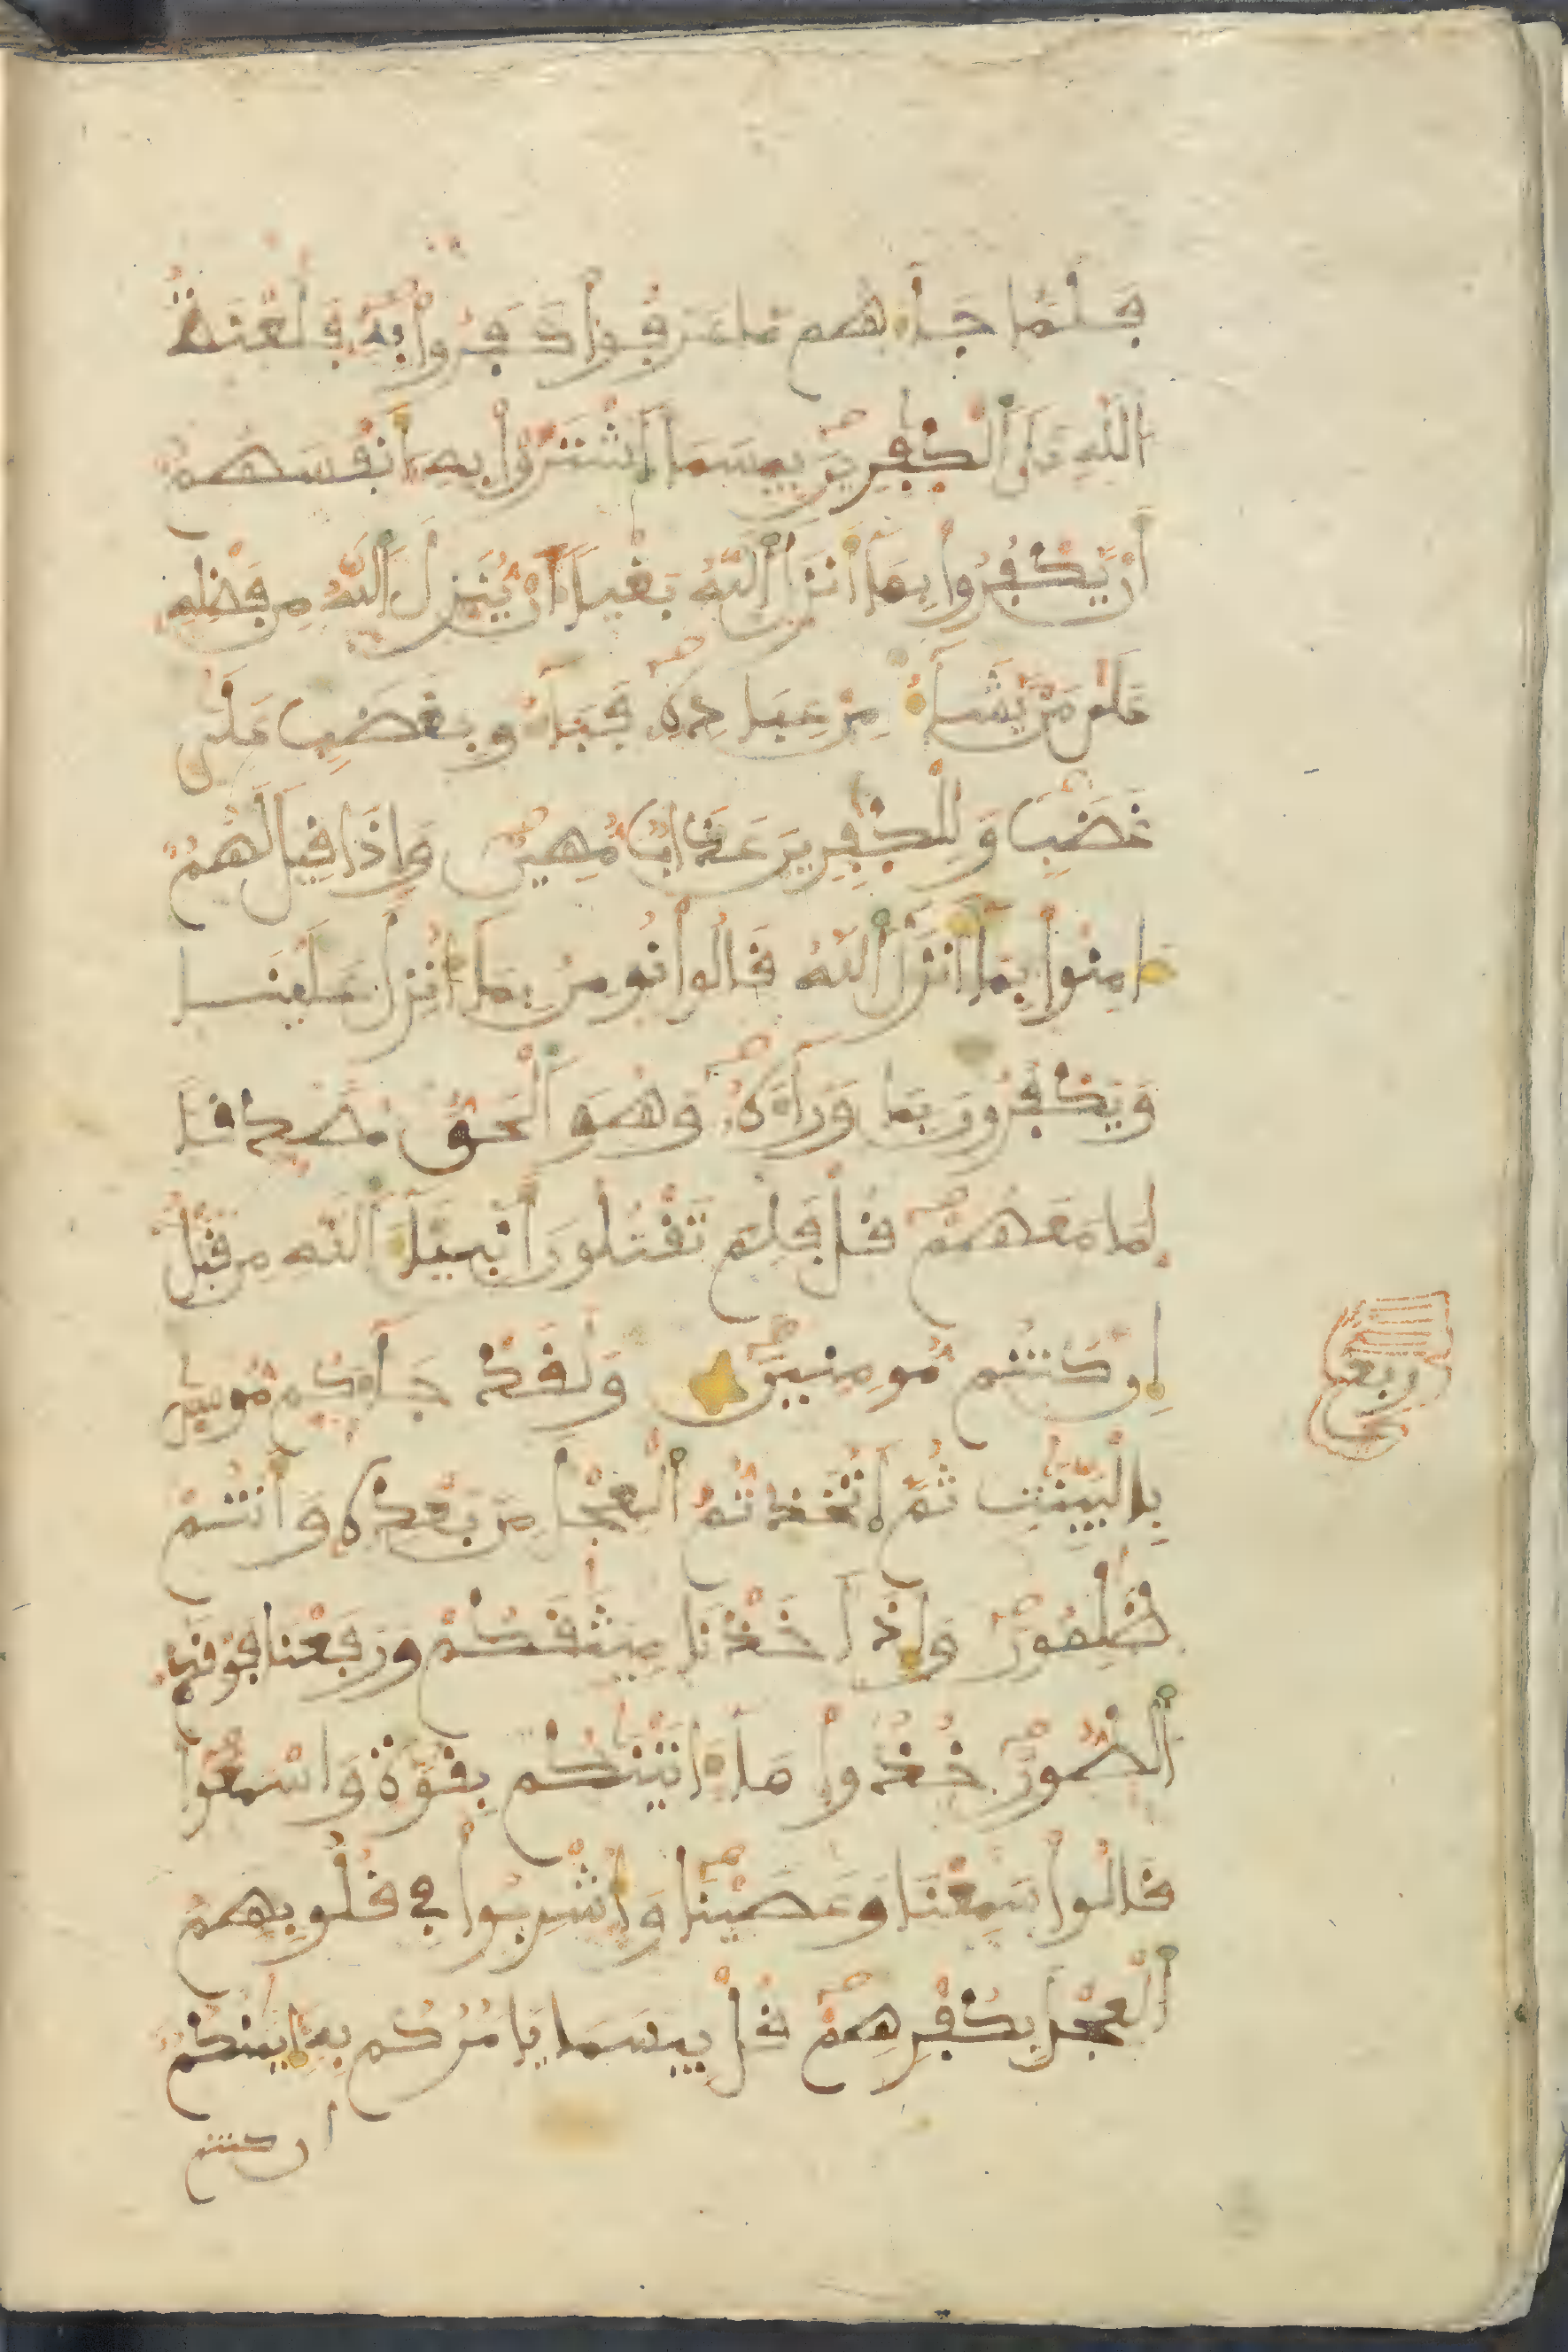 فَلَمَّا جَآءَهُم مَّا عَرَفُواْ كَفَرُواْ بِهِۦ فَلَعْنَةُ
اُ۬للَّهِ عَلَى اَ۬لْكٰفِرِينَ بِيسَمَا اَ۪شْتَرَوْاْ بِهِۦٓ أَنفُسَهُمُۥٓ
أَنْ يَّكْفُرُواْ بِمَآ أَنزَلَ اَ۬للَّهُ بَغْياً اَنْ يُّنَزِّلَ اَ۬للَّهُ مِن فَضْلِهِۦ
عَلَىٰ مَنْ يَّشَآءُ مِنْ عِبَادِهِۦ فَبَآءُو بِغَضَبٍ عَلَىٰ
غَضَبٍ وَلِلْكٰفِرِينَ عَذَابٌ مُّهِينٌ وَإِذَا قِيلَ لَهُمُۥٓ
ءَامِنُواْ بِمَآ أَنزَلَ اَ۬للَّهُ قَالُواْ نُومِنُ بِمَآ أُنزِلَ عَلَيْنَا
وَيَكْفُرُونَ بِمَا وَرَآءَهُۥ وَهُوَ اَ۬لْحَقُّ مُصَدِّقاً
لِّمَا مَعَهُمْ قُلْ فَلِمَ تَقْتُلُونَ أَنۢبِيَآءَ اَ۬للَّهِ مِن قَبْلُ
إِن كُنتُم مُّومِنِينَ وَلَقَدْ جَآءَكُم مُّوسىٰ
بِالْبَيِّنٰتِ ثُمَّ اَ۪تَّخَذتُّمُ اُ۬لْعِجْلَ مِنۢ بَعْدِهِۦ وَأَنتُمْ
ظٰلِمُونَ وَإِذَ اَخَذْنَا مِيثٰقَكُمْ وَرَفَعْنَا فَوْقَكُمُ
اُ۬لطُّورَ خُذُواْ مَآ ءَاتَيْنٰكُم بِقُوَّةٍ وَاسْمَعُواْ
قَالُواْ سَمِعْنَا وَعَصَيْنَا وَأُشْرِبُواْ فِي قُلُوبِهِمُ
اُ۬لْعِجْلَ بِكُفْرِهِمْ قُلْ بِيسَمَا يَامُرُكُم بِهِۦٓ إِيمَٰنُكُمُۥٓ
ان كنتم
ربع